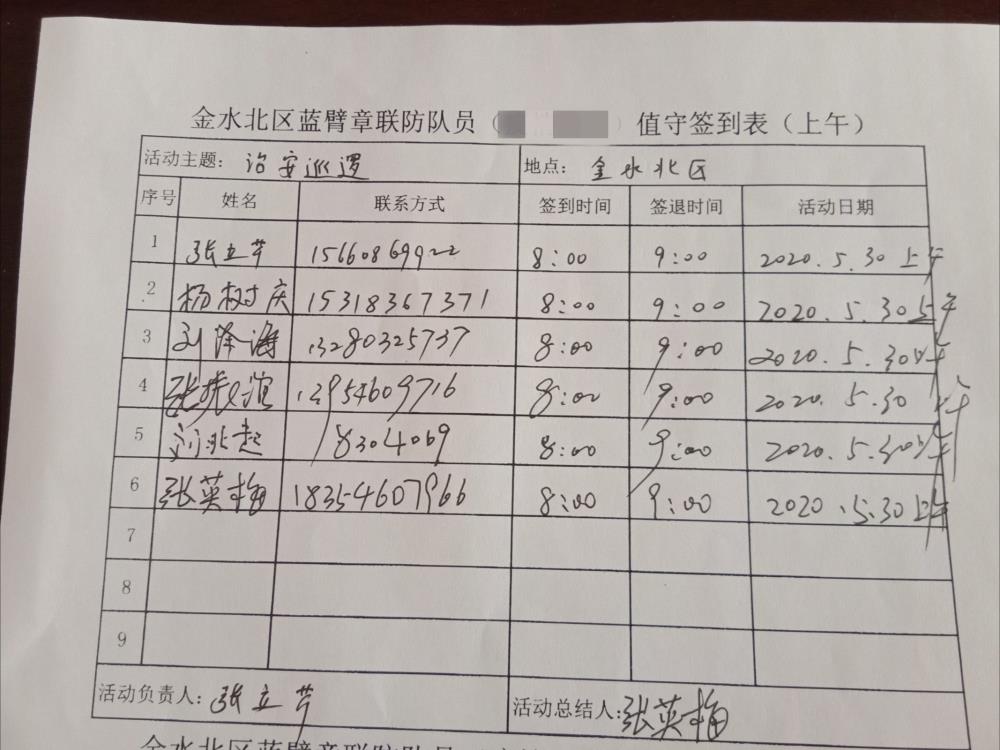 金水北区蓝臂章联防队员（ ）值守签到表（上午）
活动主题：治安巡逻 地点：金水北区
序号 姓名 联系方式 签到时间 签退时间 活动日期
1 张立芹 15660869922 8:00 9:00 2020.5.30上午
2 杨树庆 15318367371 8:00 9:00 2020.5.30上午
3 刘泽海 13280325737 8:00 9:00 2020.5.30上午
4 张振 13954609716 8:00 9:00 2020.5.30上午
5 8:00 9:00 2020.5.30上午
6 张英梅 18354607966 8:00 9:00 2020.5.30上午
7
8
9
活动负责人：张立芹 活动总结人：张英梅
金水北区蓝臂章联防队员